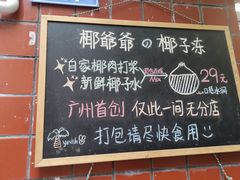 椰爷爷の椰子冻
自家椰肉打浆
新鲜椰子水
29元
广州首创 仅此一间无分店
打包请尽快食用